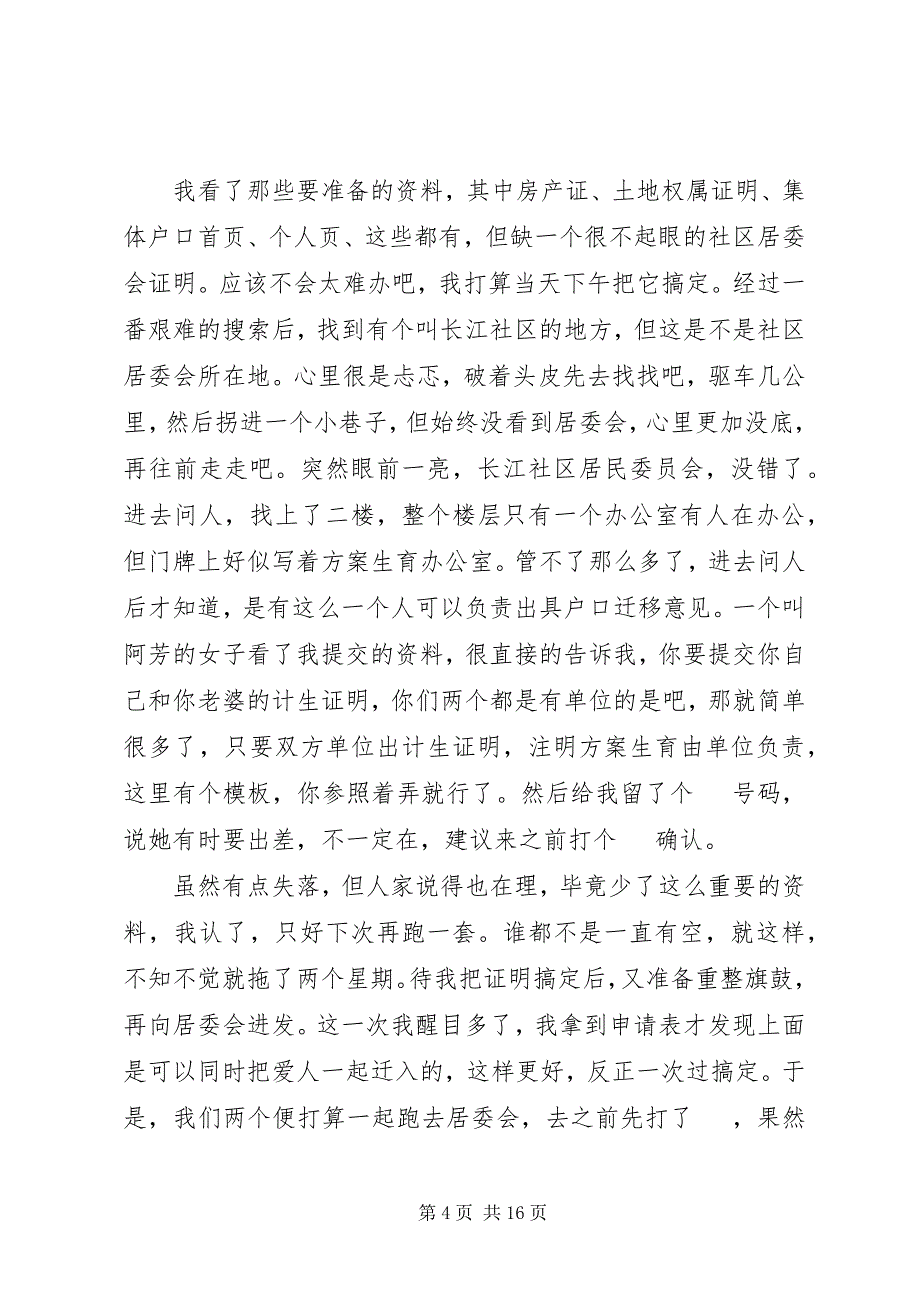 我看了那些要准备的资料，其中房产证、土地权属证明、集
体户口首页、个人页、这些都有，但缺一个很不起眼的社区居委
会证明。应该不会太难办吧，我打算当天下午把它搞定。经过一
番艰难的搜索后，找到有个叫长江社区的地方，但这是不是社区
居委会所在地。心里很是忐忑，破着头皮先去找找吧，驱车几公
里，然后拐进一个小巷子，但始终没看到居委会，心里更加没底，
再往前走走吧。突然眼前一亮，长江社区居民委员会，没错了。
进去问人，找上了二楼，整个楼层只有一个办公室有人在办公，
但门牌上好似写着方案生育办公室。管不了那么多了，进去问人
后才知道，是有这么一个人可以负责出具户口迁移意见。一个叫
阿芳的女子看了我提交的资料，很直接的告诉我，你要提交你自
己和你老婆的计生证明，你们两个都是有单位的是吧，那就简单
很多了，只要双方单位出计生证明，注明方案生育由单位负责，
这里有个模板，你参照着弄就行了。然后给我留了个 号码，
说她有时要出差，不一定在，建议来之前打个 确认。
虽然有点失落，但人家说得也在理，毕竟少了这么重要的资
料，我认了，只好下次再跑一套。谁都不是一直有空，就这样，
不知不觉就拖了两个星期。待我把证明搞定后，又准备重整旗鼓，
再向居委会进发。这一次我醒目多了，我拿到申请表才发现上面
是可以同时把爱人一起迁入的，这样更好，反正一次过搞定。于
是，我们两个便打算一起跑去居委会，去之前先打了 ，果然
第 4 页 共 16 页